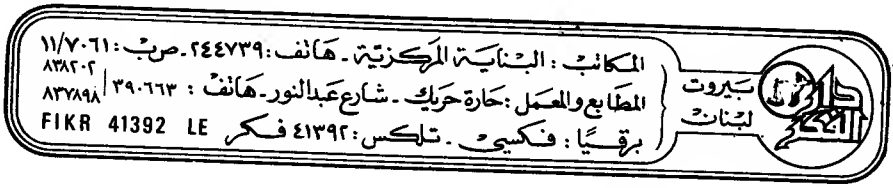 دار الفكر
بيروت
لبنان
المكاتب : البناية المركزية - هاتف : ٢٤٤٧٣٩ - ص ب : ١١/٧٠٦١
المطابع والمعمل : حارة حريك - شارع عبد النور - هاتف : ٣٩٠٦٦٣ / ٨٣٨٢٠٢ ٨٣٧٨٩٨
برقيًا : فكسي - تلكس : ٤١٣٩٢ فكر FIKR 41392 LE